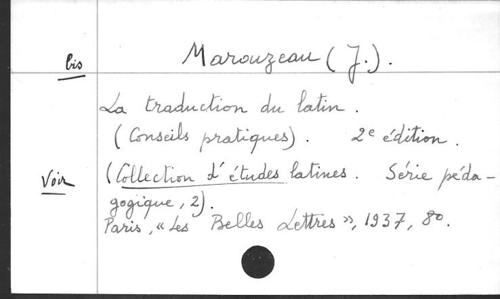 bis
Marouzeau (J.).
La traduction du latin.
(Conseils pratiques). 2e édition.
Voir
(Collection d'études latines. Série péda-
gogique, 2).
Paris, « Les Belles Lettres », 1937, 8o.